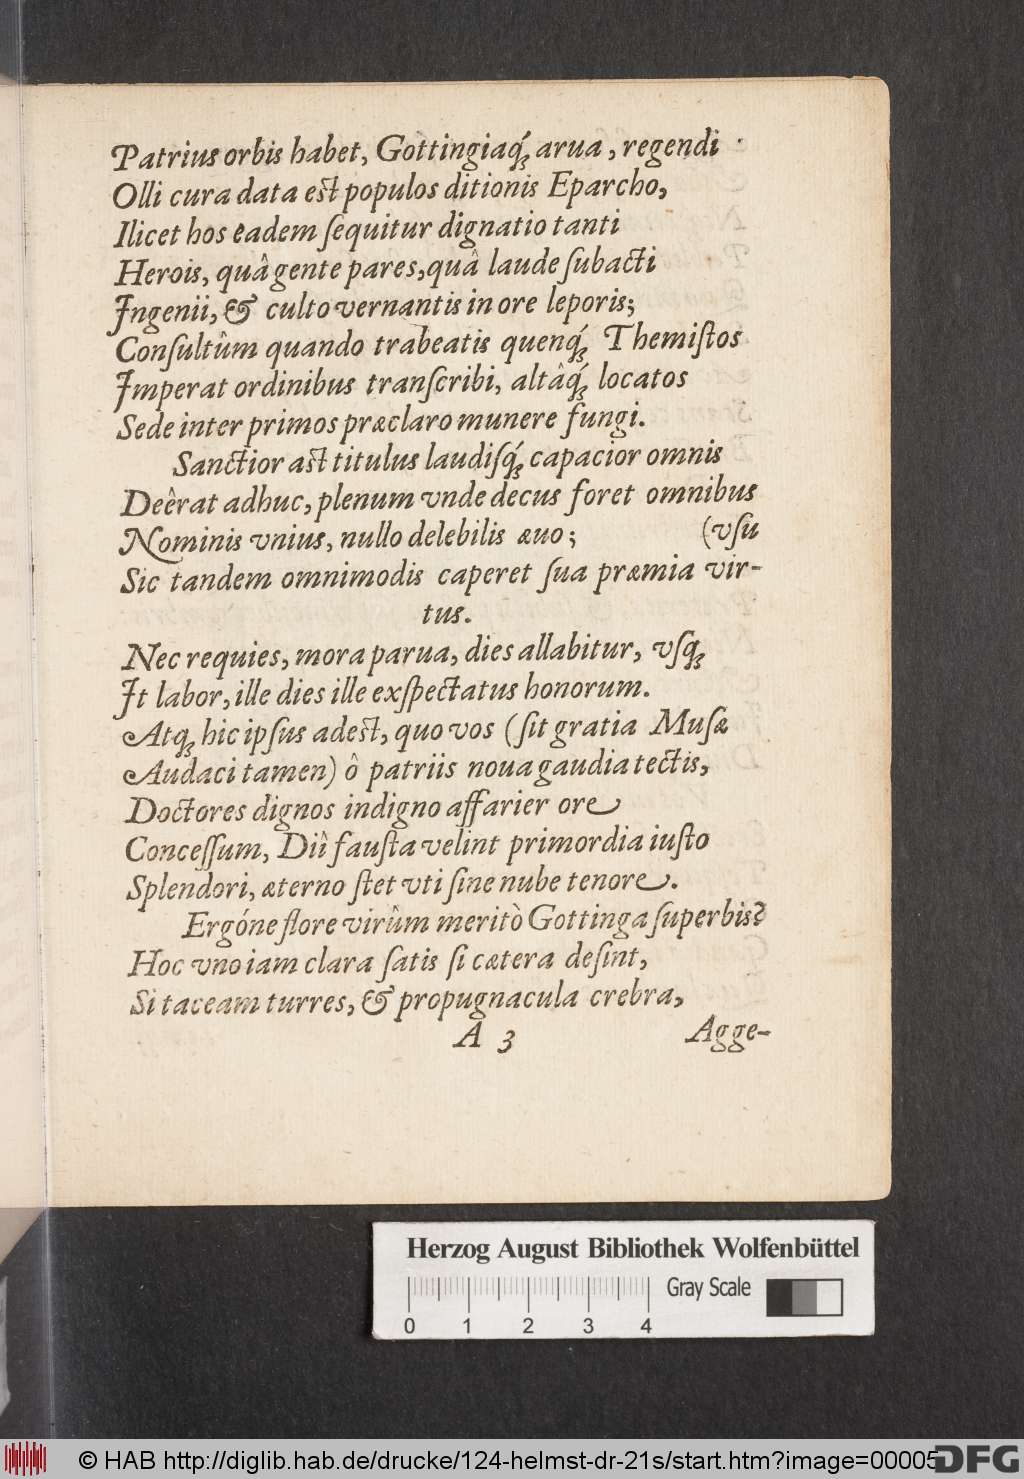 Patrius orbis habet, Gottingiaq́; arua, regendi
Olli cura data est populos ditionis Eparcho,
Ilicet hos eadem ſequitur dignatio tanti
Herois, quâ gente pares, quâ laude ſubacti
Ingenii, & culto vernantis in ore leporis;
Conſultûm quando trabeatis quenq́; Themiſtos
Imperat ordinibus tranſcribi, altâq́; locatos
Sede inter primos præclaro munere fungi.
Sanctior aſt titulus laudiſq́; capacior omnis
Deêrat adhuc, plenum vnde decus foret omnibus
Nominis vnius, nullo delebilis æuo; (vſu
Sic tandem omnimodis caperet ſua præmia vir-
tus.
Nec requies, mora parua, dies allabitur, vſq;
It labor, ille dies ille exſpectatus honorum.
Atq; hic ipſus adest, quo vos (ſit gratia Muſæ
Audaci tamen) ô patriis noua gaudia tectis,
Doctores dignos indigno affarier ore
Conceſſum, Dii fauſta velint primordia iuſto
Splendori, æterno ſtet vti ſine nube tenore.
Ergóne flore virûm meritò Gottinga ſuperbis?
Hoc vno iam clara ſatis ſi cætera deſint,
Si taceam turres, & propugnacula crebra,
A 3 Agge-
Herzog August Bibliothek Wolfenbüttel
Gray Scale
0 1 2 3 4
© HAB http://diglib.hab.de/drucke/124-helmst-dr-21s/start.htm?image=00005
DFG